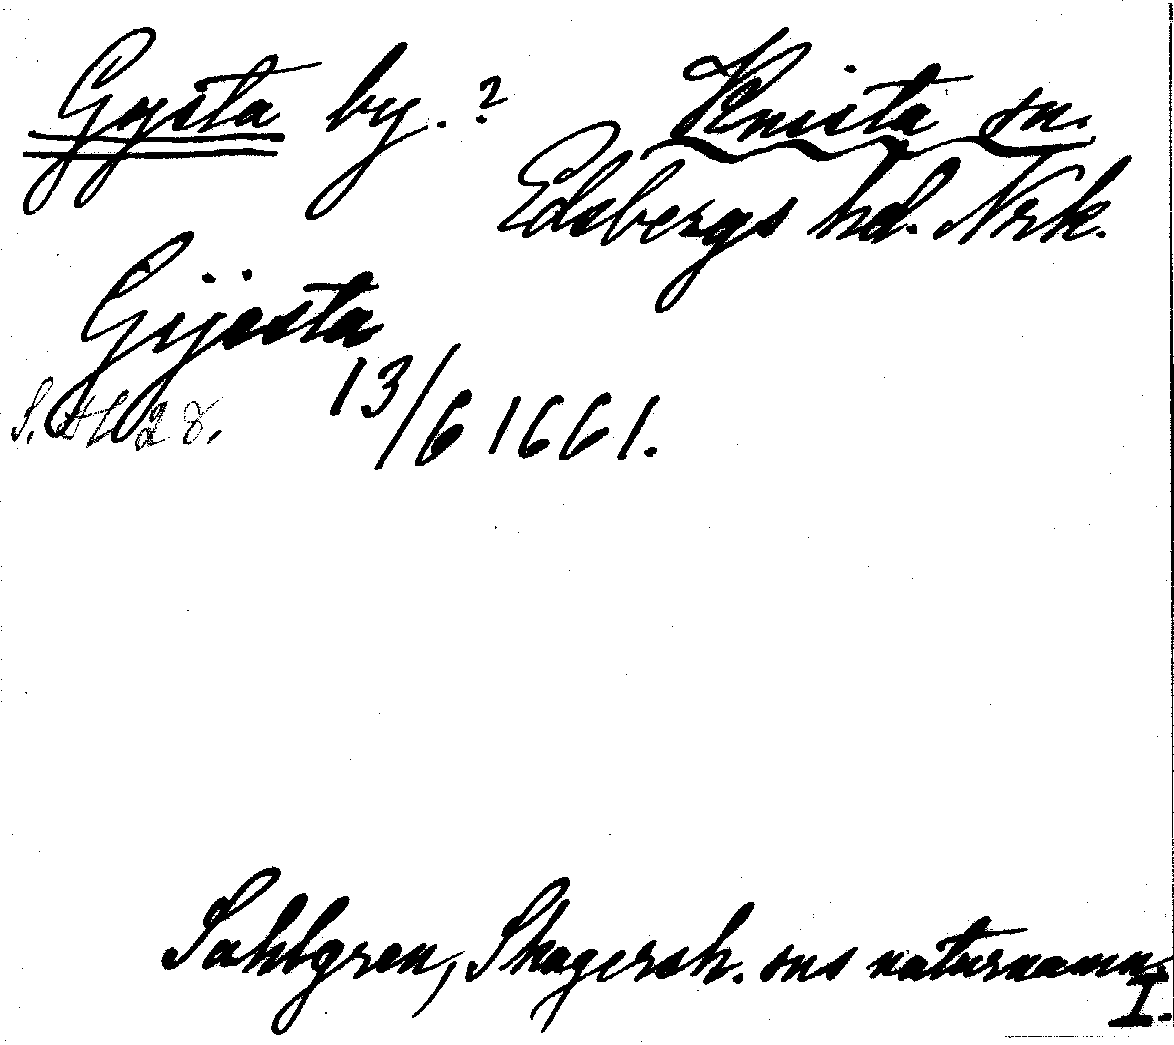 Gysta by.? Knista sn.
Edsbergs hd. Nrk.
Gijesta
13/6 1661.
S. 28.
Sahlgren, Skagersh. sns naturnamn
I.